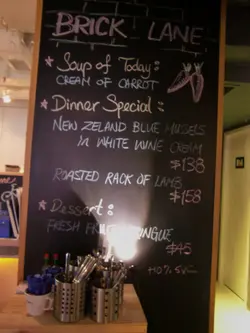 BRICK LANE
Soup of Today:
CREAM OF CARROT
Dinner Special:
NEW ZELAND BLUE MUSSELS
in WHITE WINE CREAM
$138
ROASTED RACK OF LAMB
$158
Dessert:
FRESH FRUIT
$45
+10% S.V.C